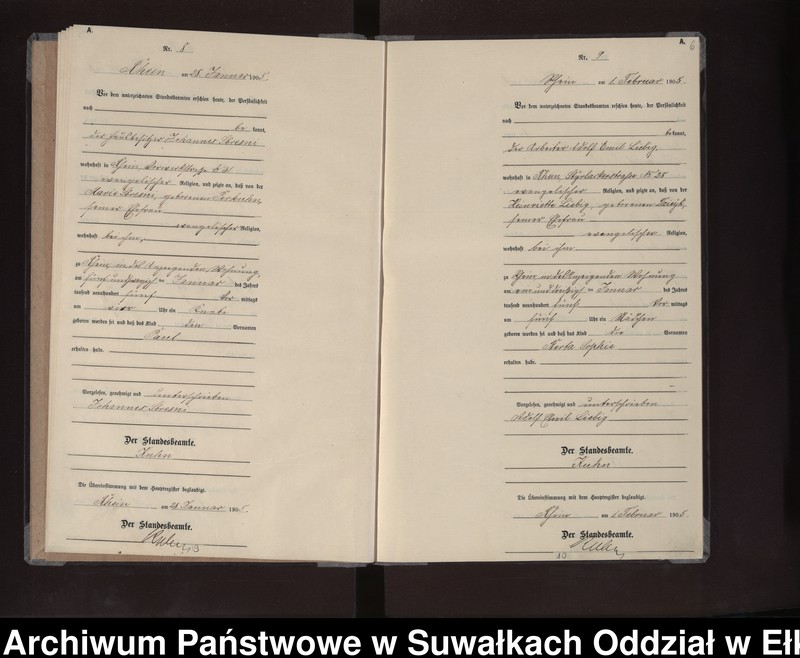 A.
Nr. 8
Rhein am 28. Januar 1905.
Vor dem unterzeichneten Standesbeamten erschien heute, der Persönlichkeit
nach
be kannt,
der Johannes
wohnhaft in Rhein
evangelischer Religion, und zeigte an, daß von der
Marie geborenen
seiner Ehefrau
evangelischer Religion,
wohnhaft bei ihm,
zu Rhein in der Wohnung,
am fünf und Januar des Jahres
tausend neunhundert fünf Vor mittags
um vier Uhr ein Knabe
geboren worden sei und daß das Kind den Vornamen
Paul
erhalten habe.
Vorgelesen, genehmigt und unterschrieben
Johannes
Der Standesbeamte.
Kuhn
Die Übereinstimmung mit dem Hauptregister beglaubigt.
Rhein am 28. Januar 1905.
Der Standesbeamte.
A. 6
Nr. 9
Rhein am 1. Februar 1905.
Vor dem unterzeichneten Standesbeamten erschien heute, der Persönlichkeit
nach
bekannt,
der Arbeiter Adolf Emil Liebig,
wohnhaft in Rhein, No 25
evangelischer Religion, und zeigte an, daß von der
Henriette Liebig, geborenen
seiner Ehefrau
evangelischer Religion,
wohnhaft bei ihm
zu Rhein in der Wohnung
am ein und dreißigsten Januar des Jahres
tausend neunhundert fünf Vor mittags
um fünf Uhr ein Mädchen
geboren worden sei und daß das Kind die Vornamen
Sophie
erhalten habe.
Vorgelesen, genehmigt und unterschrieben
Adolf Emil Liebig
Der Standesbeamte.
Kuhn
Die Übereinstimmung mit dem Hauptregister beglaubigt.
Rhein am 1. Februar 1905.
Der Standesbeamte.
10
Archiwum Państwowe w Suwałkach Oddział w Ełk